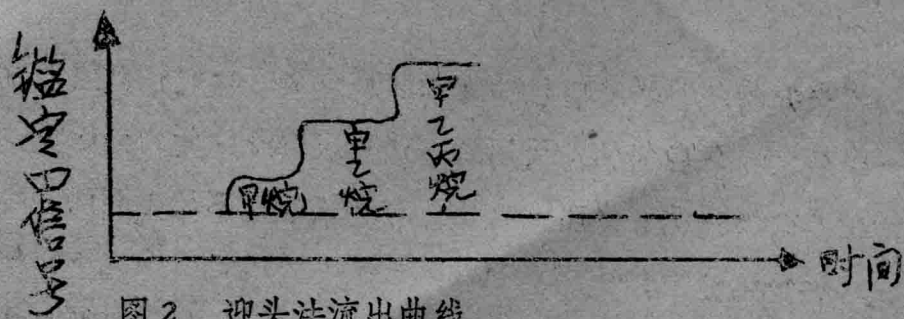 鑑定器信号
甲烷
甲乙烷
甲乙丙烷
时间
图2 迎头法流出曲线